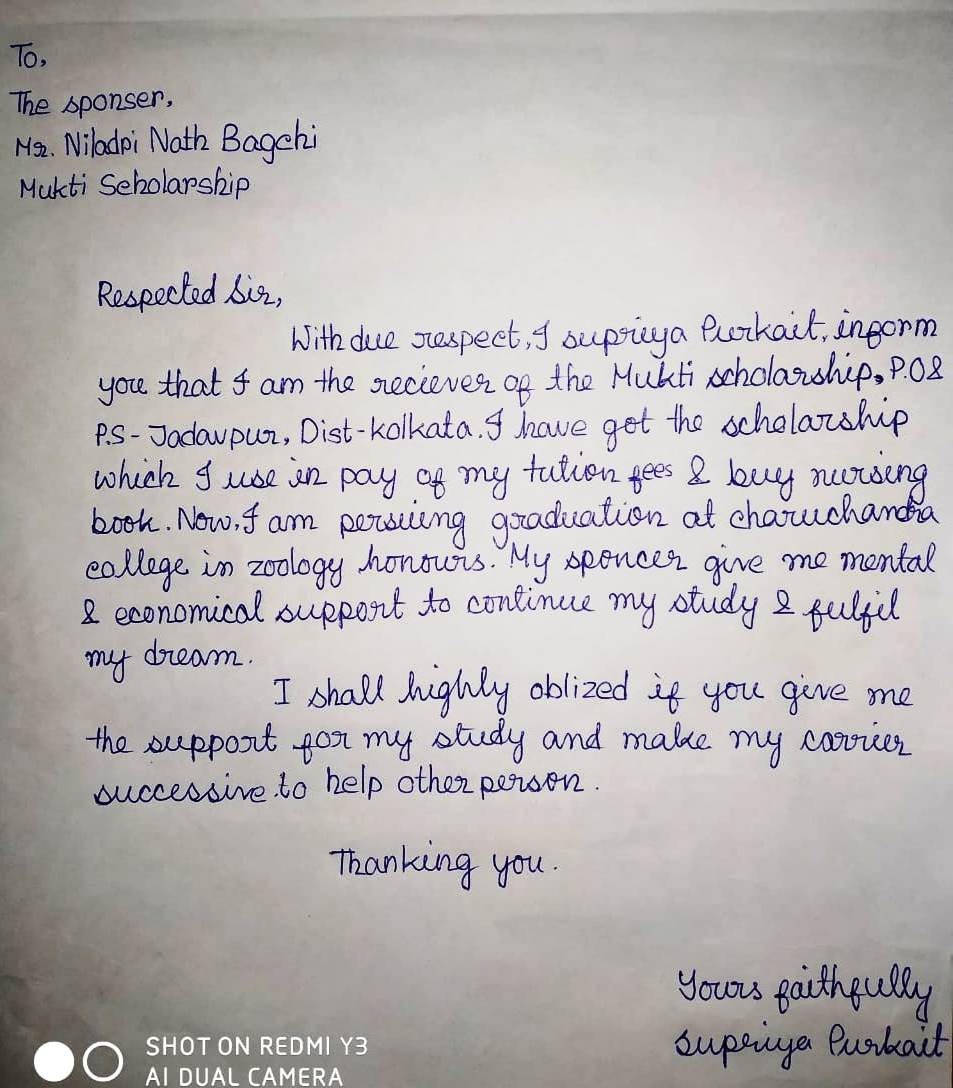 To,
The sponser,
Mr. Niladri Nath Bagchi
Mukti Scholarship
Respected Sir,
With due respect, I supriya Purkait, inform
you that I am the reciever of the Mukti scholarship, P.O &
P.S - Jadavpur, Dist - kolkata. I have got the scholarship
which I use in pay of my tution fees & buy nursing
book. Now, I am persuing graduation at charuchandra
college in zoology honours. My sponcer give me mental
& economical support to continue my study & fulfil
my dream.
I shall highly oblized if you give me
the support for my study and make my carrier
successive to help other person.
Thanking you.
Yours faithfully
Supriya Purkait
SHOT ON REDMI Y3
AI DUAL CAMERA